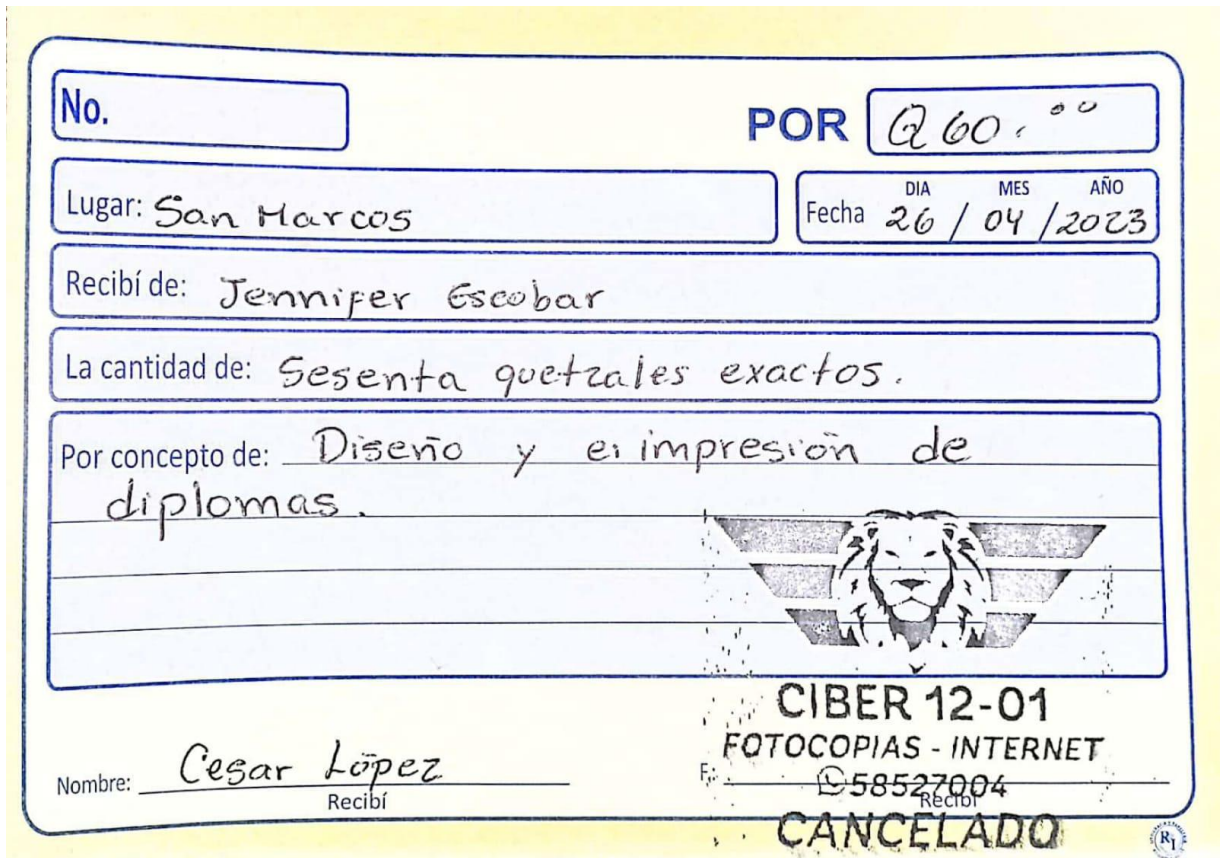 No.
POR Q 60.00
Lugar: San Marcos
DIA MES AÑO
Fecha 26 / 04 / 2023
Recibí de: Jennifer Escobar
La cantidad de: Sesenta quetzales exactos.
Por concepto de: Diseño y ei impresión de
diplomas.
CIBER 12-01
FOTOCOPIAS - INTERNET
58527004
CANCELADO
Nombre: Cesar López
Recibí
F.:
Recibí
RI